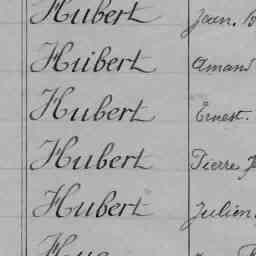 Hubert Jean.
Hubert Amand
Hubert Ernest.
Hubert Pierre
Hubert Julien